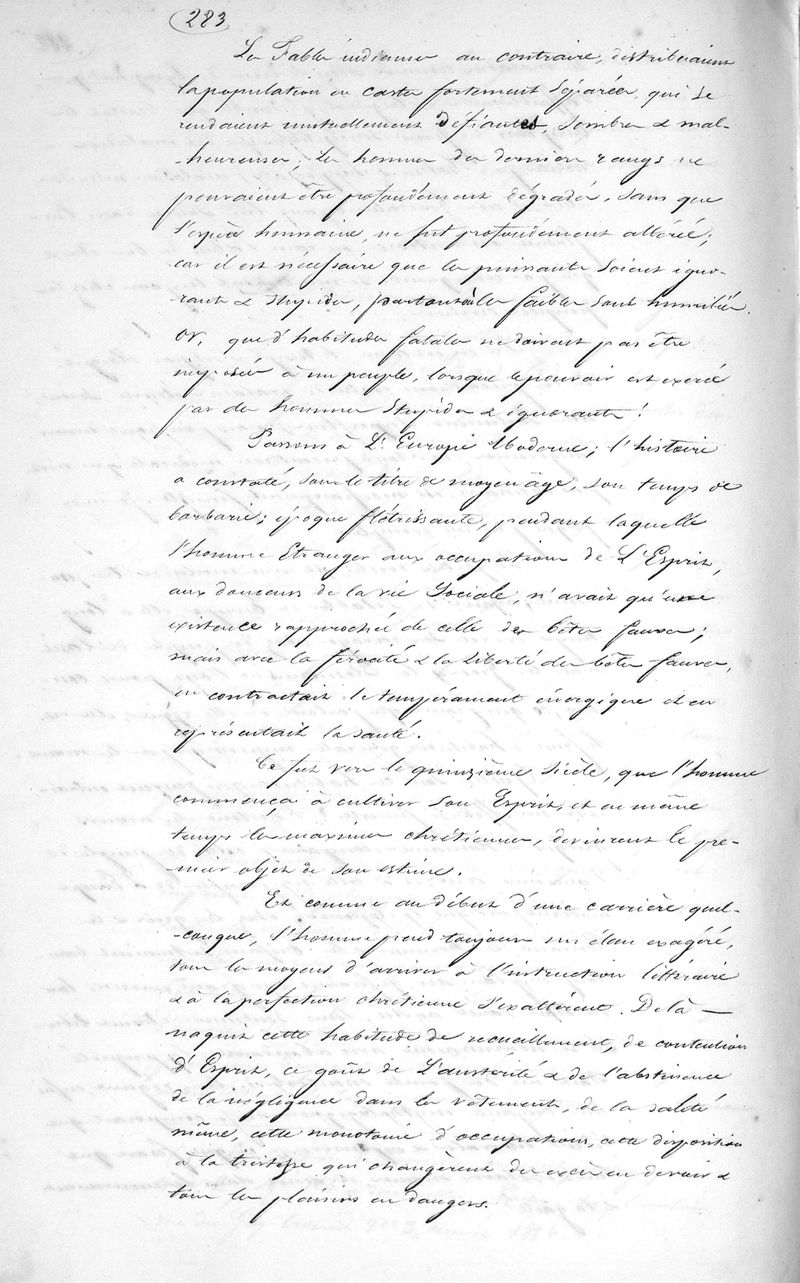 283
Les Fables indiennes au contraire, distribuaient
la population en castes fortement séparées, qui se
rendaient mutuellement défiantes, sombres & mal-
-heureuses; les hommes des derniers rangs ne
pouvaient être profondément dégradés, sans que
l'espèce humaine, ne fut profondément altérée;
car il est nécessaire que les puissants soient igno-
rants & stupides, partout où les faibles sont humiliés.
Or, que d'habitudes fatales ne doivent pas être
imposées à un peuple, lorsque le pouvoir est exercé
par des hommes stupides & ignorants!
Passons à L'Europe Moderne; l'histoire
a constaté, sous le titre de moyen âge, son temps de
barbarie; époque flétrissante, pendant laquelle
l'homme Etranger aux occupations de L'Esprit,
aux douceurs de la vie Sociale, n'avait qu'une
existence rapprochée de celle des bêtes fauves;
mais avec la férocité & la liberté des bêtes fauves,
il en contractait le tempérament énergique et en
représentait la santé.
Ce fut vers le quinzième siècle, que l'homme
commença à cultiver son Esprit, et en même
temps les maximes chrétiennes, devinrent le pre-
-mier objet de son estime.
Et comme au début d'une carrière quel-
-conque, l'homme prend toujours un élan exagéré,
tous les moyens d'arriver à l'instruction littéraire
& à la perfection chrétienne s'exaltèrent. De là —
naquit cette habitude de recueillement, de contention
d'Esprit, ce goût de L'austérité & de l'abstinence
de la négligence dans les vêtements, de la saleté
même, cette monotonie d'occupations, cette disposition
à la tristesse qui changèrent des excès en devoirs &
tous les plaisirs en dangers.